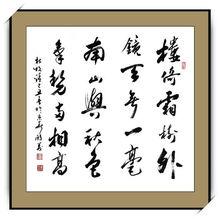 樓倚霜樹外
鏡天無一毫
南山與秋色
氣勢兩相高
杜牧詩